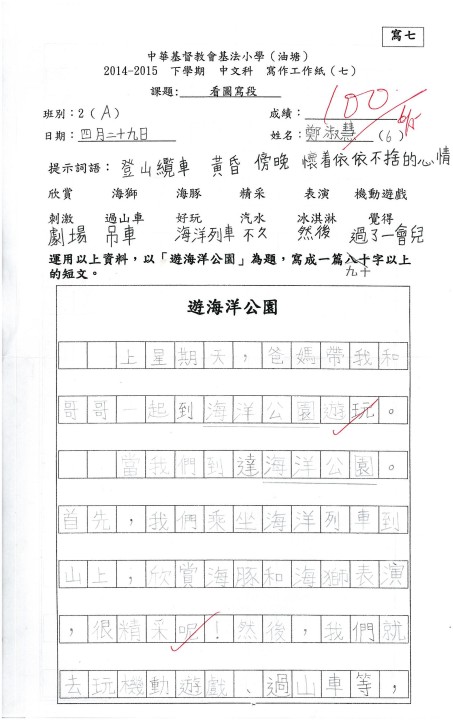 寫七
中華基督教會基法小學（油塘）
2014-2015 下學期 中文科 寫作工作紙（七）
課題： 看圖寫段
班別：2（A） 成績：100
日期：四月二十九日 姓名：鄭淑慧（6） 6/5
提示詞語：登山纜車 黃昏 傍晚 懷着依依不捨的心情
欣賞 海獅 海豚 精采 表演 機動遊戲
刺激 過山車 好玩 汽水 冰淇淋 覺得
劇場 吊車 海洋列車 不久 然後 過了一會兒
運用以上資料，以「遊海洋公園」為題，寫成一篇八十字以上
九十
的短文。
遊海洋公園
上星期天，爸媽帶我和
哥哥一起到海洋公園遊玩。
當我們到達海洋公園。
首先，我們乘坐海洋列車到
山上，欣賞海豚和海獅表演
，很精采呢！然後，我們就
去玩機動遊戲、過山車等，